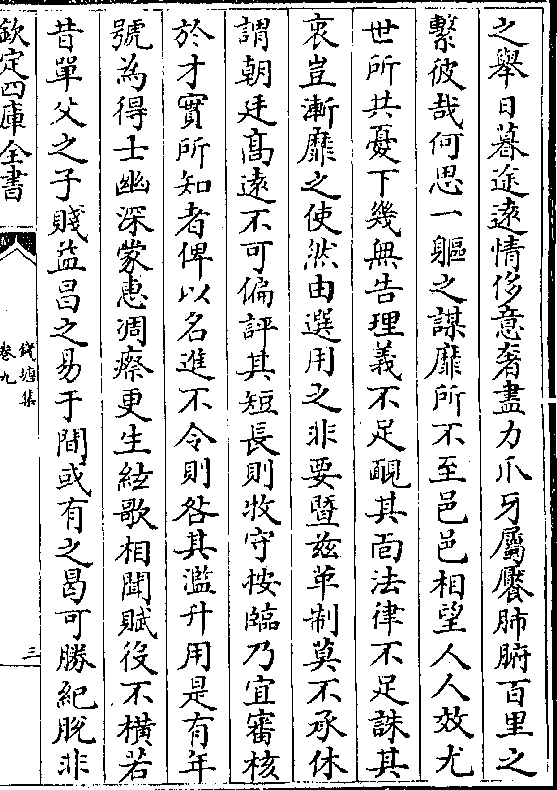 之舉日暮途遠情侈意奢盡力爪牙屬饜肺腑百里之
繫彼哉何思一軀之謀靡所不至邑邑相望人人效尤
世所共憂下幾無告理義不足靦其面法律不足誅其
衷豈漸靡之使然由選用之非要暨兹革制莫不承休
謂朝廷高遠不可偏評其短長則牧守按臨乃宜審核
於才實所知者俾以名進不令則咎其濫升用是有年
號為得士幽深蒙惠凋瘵更生絃歌相聞賦役不横若
昔單父之子賤益昌之易于間或有之曷可勝紀脱非
欽定四庫全書
錢塘集
卷九
三